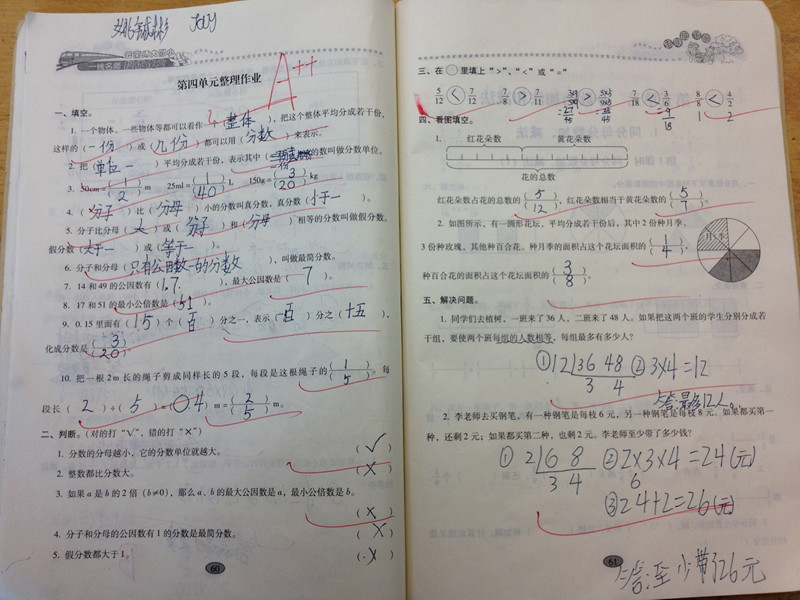 JoLY
A++
第四单元整理作业
一、填空。
1. 一个物体、一些物体等都可以看作（整体），把这个整体平均分成若干份，
这样的（一份）或（几份）都可以用（分数）来表示。
2. 把（单位一）平均分成若干份，表示其中（一份）的数叫做分数单位。
3. 50cm=（1/2）m 25ml=（1/40）L 150g=（3/20）kg
4.（分子）比（分母）小的分数叫真分数，真分数（小于一）。
5. 分子比分母（大）或（分子）和（分母）相等的分数叫做假分数。
假分数（大于一）或（等于一）。
6. 分子和分母（只有公因数一的分数），叫做最简分数。
7. 14 和 49 的公因数有（1.7），最大公因数是（7）。
8. 17 和 51 的最小公倍数是（51）。
9. 0.15 里面有（15）个（百）分之一，表示（百）分之（十五），
化成分数是（3/20）。
10. 把一根 2m 长的绳子剪成同样长的 5 段，每段是这根绳子的（1/5）。每
段长（2）÷（5）=（0.4）m=（2/5）m。
二、判断。（对的打“√”，错的打“×”）
1. 分数的分母越小，它的分数单位就越大。（√）
2. 整数都比分数大。（×）
3. 如果 a 是 b 的 2 倍（b≠0），那么 a、b 的最大公因数是 a，最小公倍数是 b。
（×）
4. 分子和分母的公因数有 1 的分数是最简分数。（×）
5. 假分数都大于 1。（×）
60
三、在○里填上“>”、“<”或“=”
5/12 < 7/12 7/8 > 7/11 > 7/18 < 3/6 8/8 < 4/2
9/18 1 2
四、看图填空。
1. 红花朵数 黄花朵数
花的总数
红花朵数占花的总数的（5/12），红花朵数相当于黄花朵数的（5/7）。
2. 如图所示，有一圆形花坛，平均分成若干份后，其中 2 份种月季，
3 份种玫瑰，其他种百合花。种月季的面积占这个花坛面积的（1/4），
月季
种百合花的面积占这个花坛面积的（3/8）。
五、解决问题。
1. 同学们去植树，一班来了 36 人，二班来了 48 人。如果把这两个班的学生分别分成若
干组，要使两个班每组的人数相等，每组最多有多少人？
① 12 36 48 ② 3×4=12
3 4
答:最多12人。
2. 李老师去买钢笔，有一种钢笔是每枝 6 元，另一种钢笔是每枝 8 元。如果都买第一
种，还剩 2 元；如果都买第二种，也剩 2 元。李老师至少带了多少钱？
① 2 6 8 ② 2×3×4=24(元)
3 4 6
③ 24+2=26(元)
61
答:至少带了26元